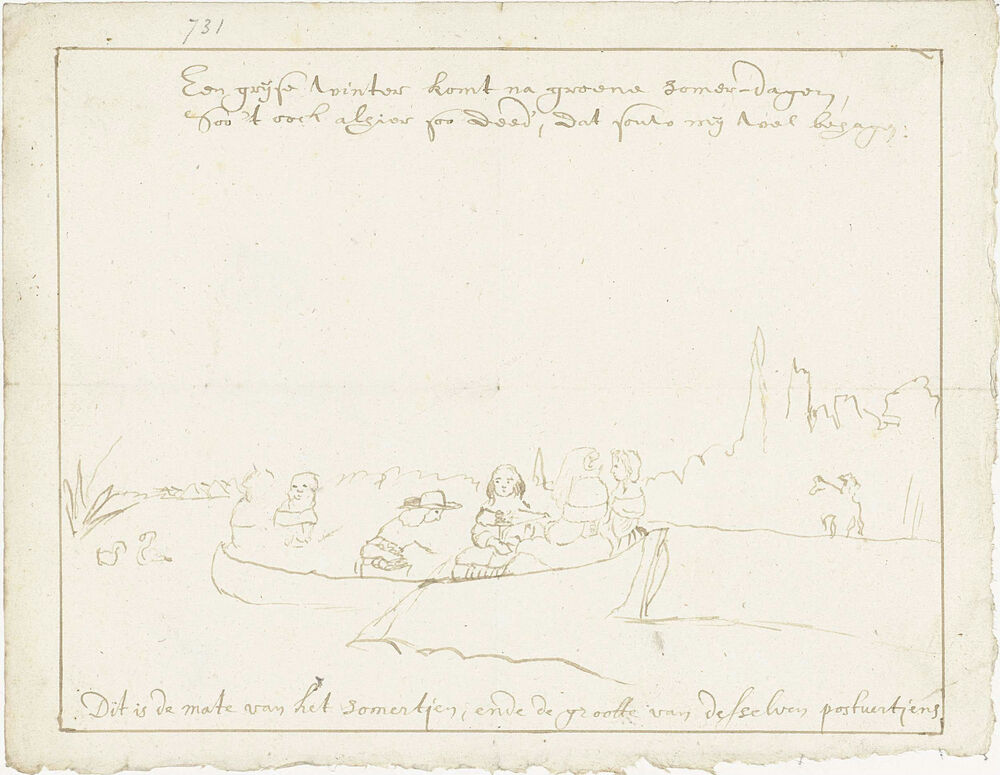 731
Een grijse winter komt na groene Zomer-dagen,
Soo't oock alhier soo deed', dat souw mij wel behagen.
Dit is de mate van het Zomertjen, ende de grootte van desselven postuertjens